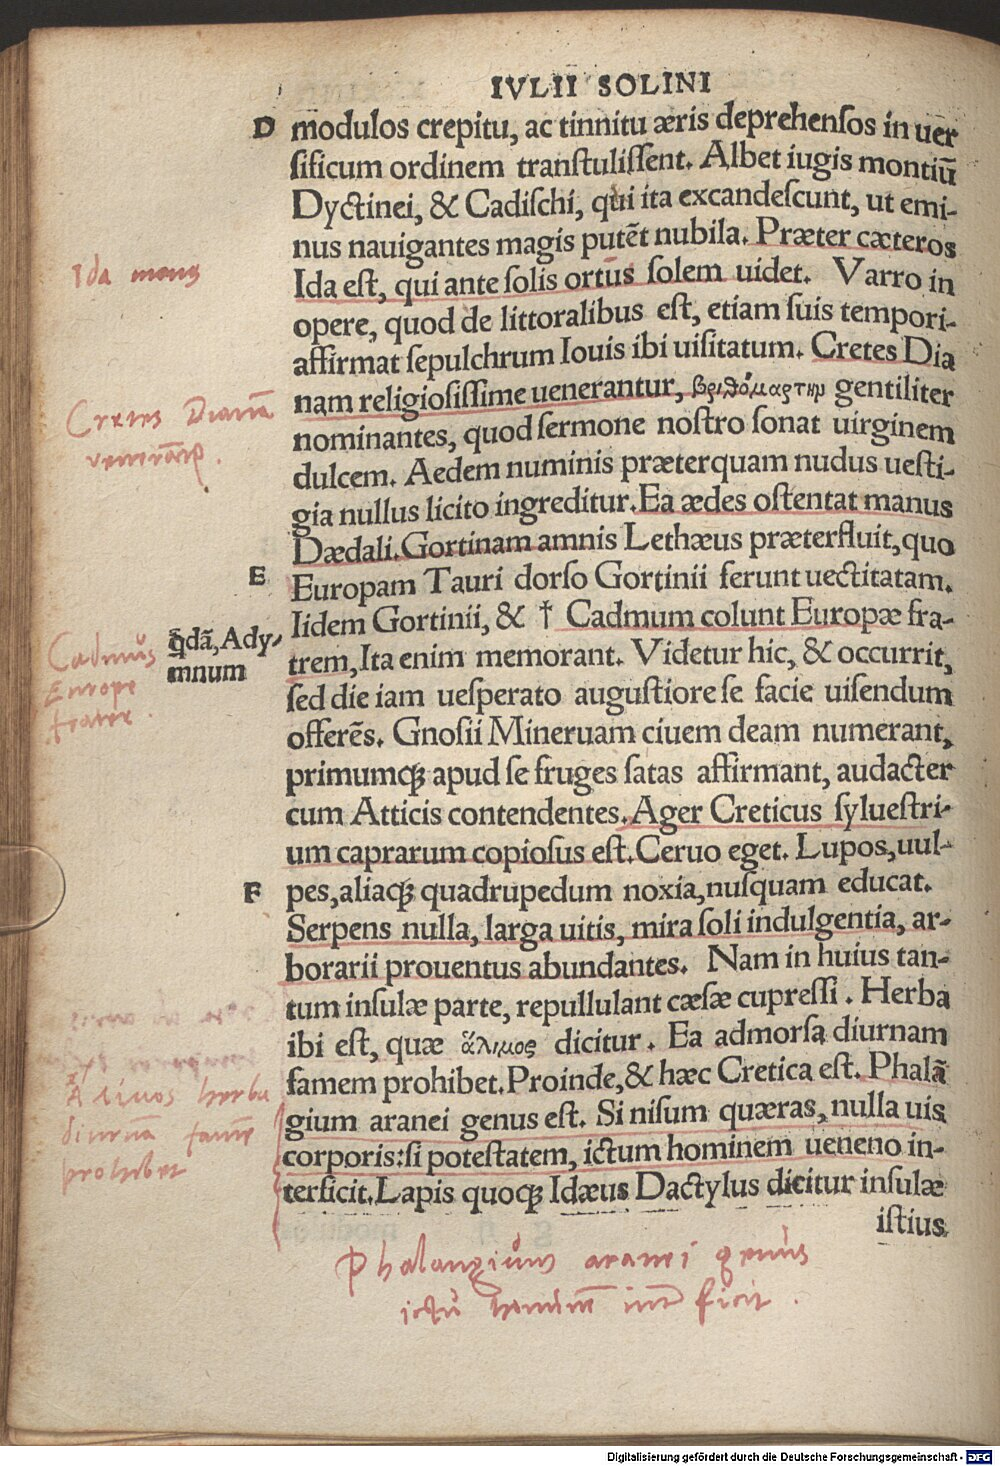 IVLII SOLINI
D modulos crepitu, ac tinnitu æris deprehenſos in uer
ſificum ordinem tranſtuliſſent. Albet iugis montiū
Dyctinei, & Cadiſchi, qui ita excandeſcunt, ut emi-
nus nauigantes magis putēt nubila. Præter cæteros
Ida mons
Ida eſt, qui ante ſolis ortūs ſolem uidet. Varro in
opere, quod de littoralibus eſt, etiam ſuis tempori-
affirmat ſepulchrum Iouis ibi uiſitatum. Cretes Dia
nam religioſiſſime uenerantur, βριθόμαρτην gentiliter
Cretes Dianā
nominantes, quod ſermone noſtro ſonat uirginem
dulcem. Aedem numinis præterquam nudus ueſti-
gia nullus licito ingreditur. Ea ædes oſtentat manus
Dædali. Gortinam amnis Lethæus præterfluit, quo
E Europam Tauri dorſo Gortinii ferunt uectitatam.
Iidem Gortinii, & † Cadmum colunt Europæ fra-
q̄dā, Ady-
mnum
Cadmus
Europe
frater.
trem, Ita enim memorant. Videtur hic, & occurrit,
ſed die iam ueſperato auguſtiore ſe facie uiſendum
offerēs. Gnoſii Mineruam ciuem deam numerant,
primumq; apud ſe fruges ſatas affirmant, audacter
cum Atticis contendentes. Ager Creticus ſylueſtri-
um caprarum copioſus eſt. Ceruo eget. Lupos, uul-
F pes, aliaq; quadrupedum noxia, nuſquam educat.
Serpens nulla, larga uitis, mira ſoli indulgentia, ar-
borarii prouentus abundantes. Nam in huius tan-
tum inſulæ parte, repullulant cæſæ cupreſſi. Herba
ibi eſt, quæ ἅλιμος dicitur. Ea admorſa diurnam
famem prohibet. Proinde, & hæc Cretica eſt. Phalā
herba
diurnā famē
prohibet
gium aranei genus eſt. Si niſum quæras, nulla uis
corporis: ſi poteſtatem, ictum hominem ueneno in-
terficit. Lapis quoq; Idæus Dactylus dicitur inſulæ
iſtius
Phalangium aranei genus
ictu hominē intˀficit.
Digitalisierung gefördert durch die Deutsche Forschungsgemeinschaft - DFG